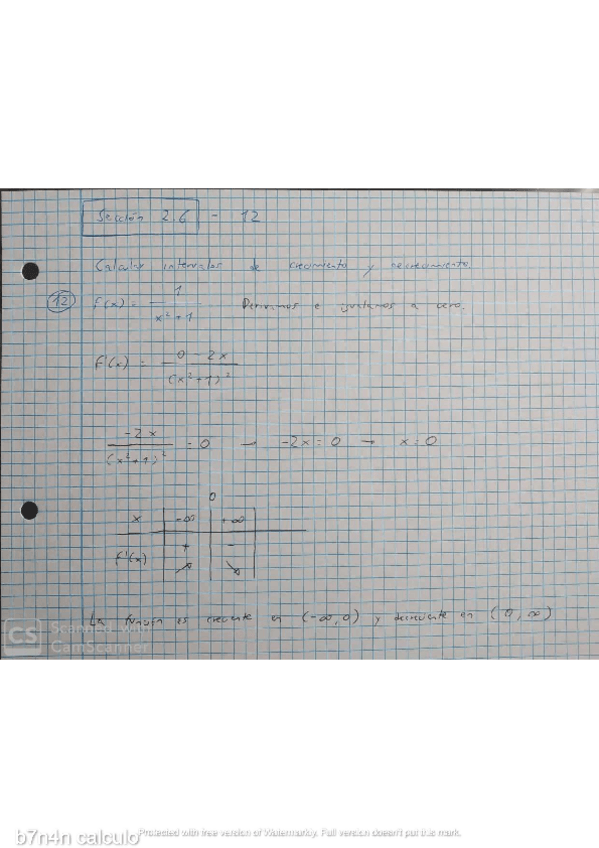 Sección 2.6 - 12
Calcular intervalos de crecimiento y decrecimiento
12 f(x) = 1 / (x² + 1) Derivamos e igualamos a cero.
f'(x) = (0 - 2x) / (x² + 1)²
-2x / (x² + 1)² = 0 → -2x = 0 → x = 0
0
x -∞ +∞
f'(x) + -
↗ ↘
La función es creciente en (-∞, 0) y decreciente en (0, ∞)
CS Scanned with
CamScanner
b7n4n calculo
Protected with free version of Watermarkly. Full version doesn't put this mark.